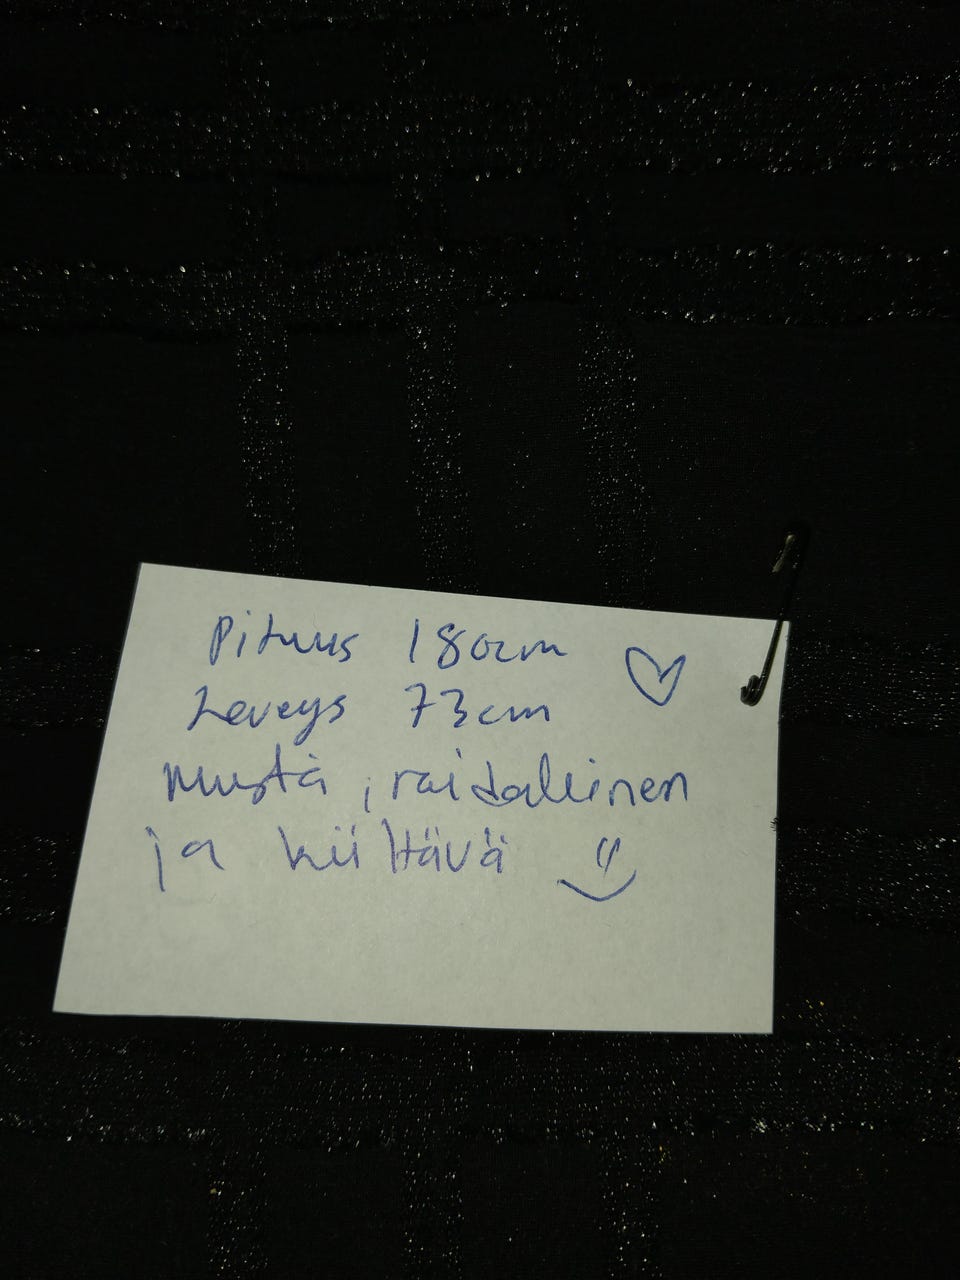 Pituus 180cm
Leveys 73cm
musta, raidallinen
ja kiiltävä